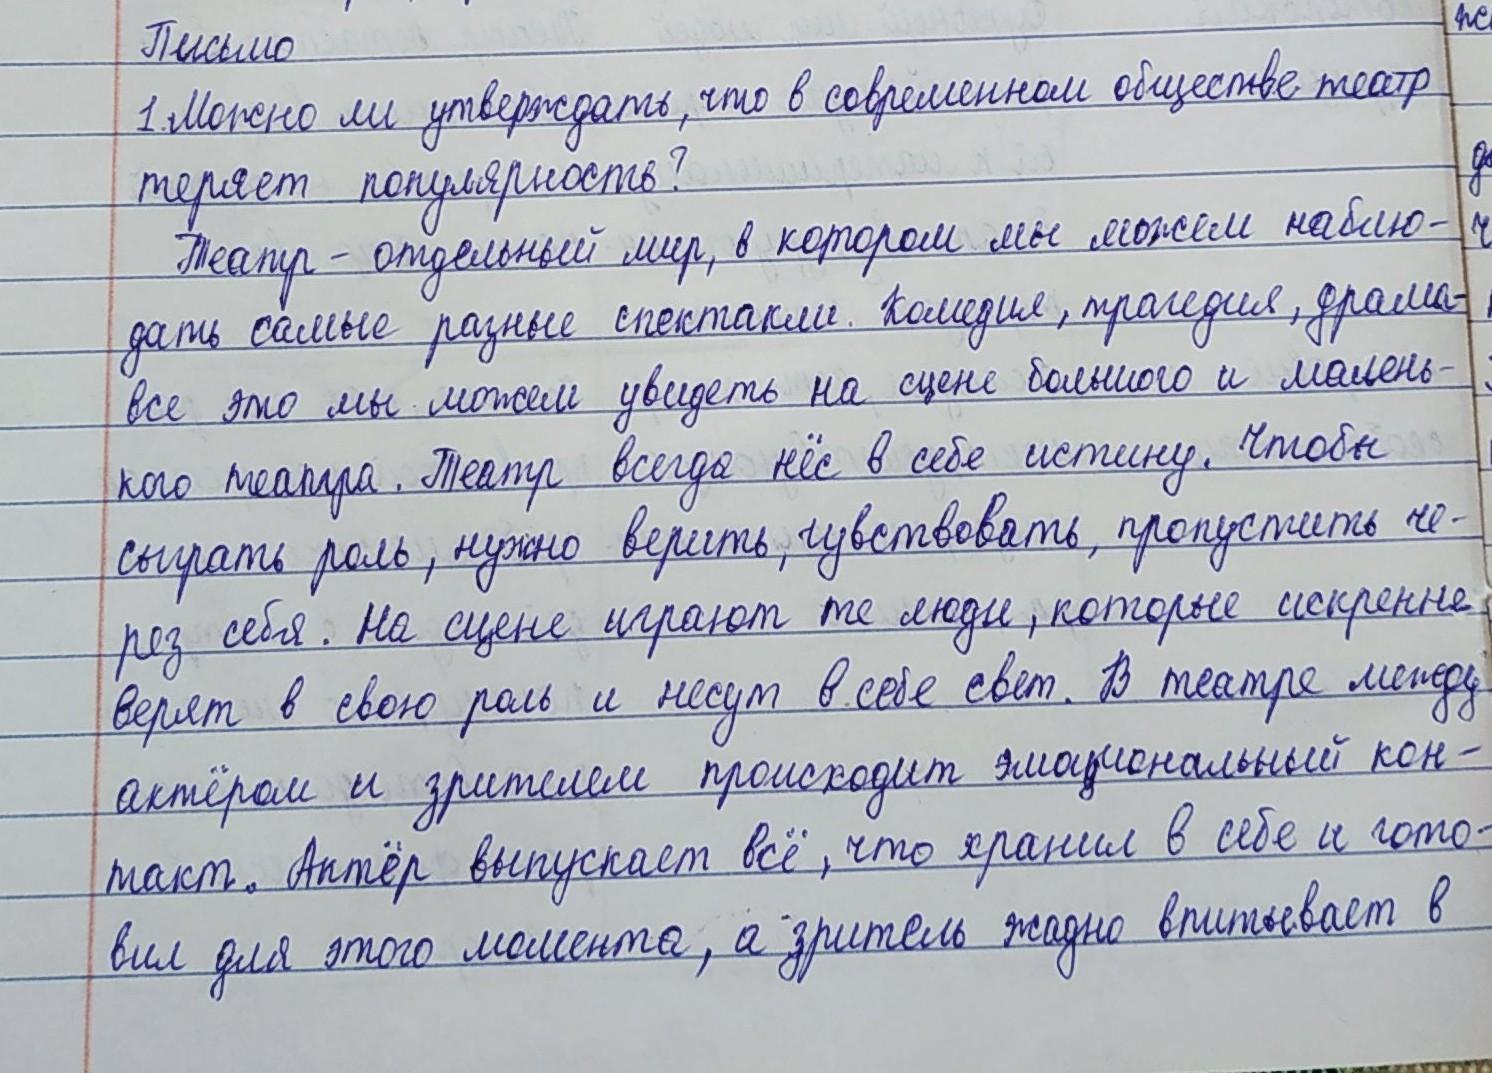 Письмо
1. Можно ли утверждать, что в современном обществе театр
теряет популярность?
Театр - отдельный мир, в котором мы можем наблю-
дать самые разные спектакли. Комедия, трагедия, драма-
все это мы можем увидеть на сцене большого и малень-
кого театра. Театр всегда нёс в себе истину. Чтобы
сыграть роль, нужно верить, чувствовать, пропустить че-
рез себя. На сцене играют те люди, которые искренне
верят в свою роль и несут в себе свет. В театре между
актёром и зрителем происходит эмоциональный кон-
такт. Актёр выпускает всё, что хранил в себе и гото-
вил для этого момента, а зритель жадно впитывает в